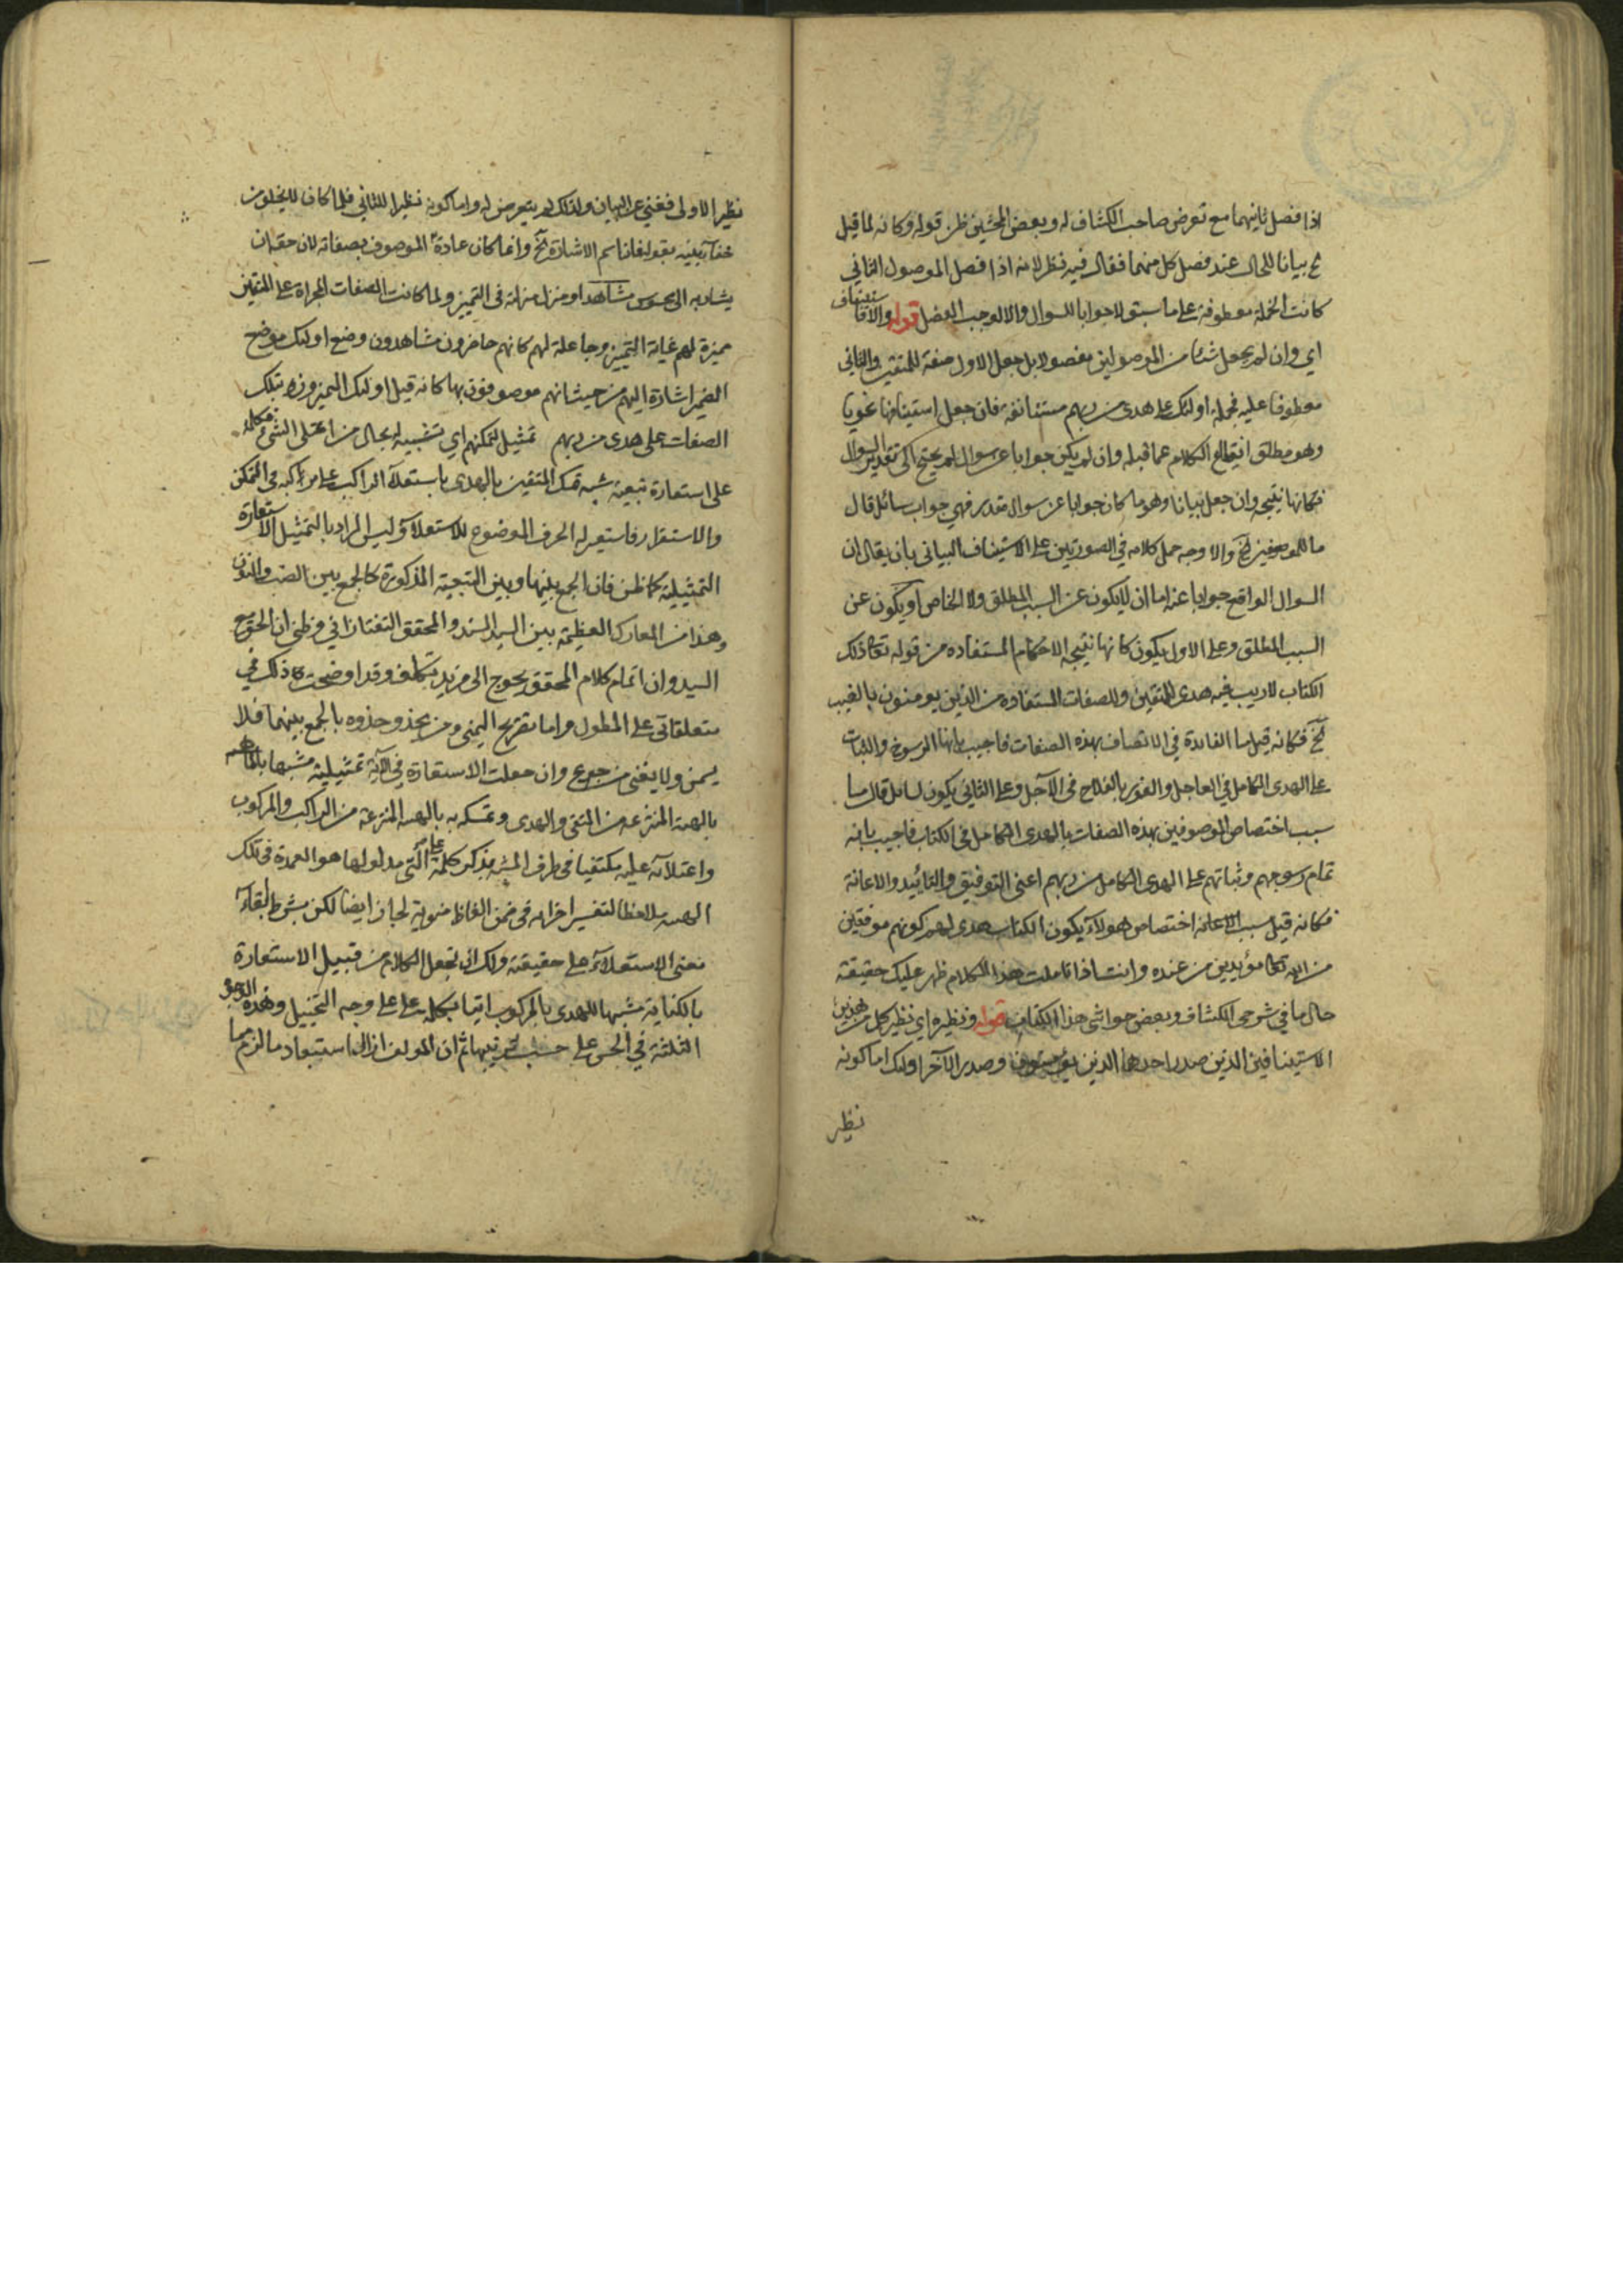 اذا فصل ثانيهما مع تعرض صاحب الكشاف له وبعض المحشين ظن قوله وكانه لما قيل
الخ بيانا للحال عند فصل كل منهما فقال فيه نظر لانه اذا فصل الموصول الثاني
كانت الجملة معطوفة على ما سبق لا جوابا للسوال والا لوجب الفصل قوله والا فاستيناف
اي وان لم يجعل شئ من الموصولين مفصولا بل جعل الاول صفة للمتقين والثاني
معطوفا عليه فجملة اولئك على هدى من ربهم مستانفة فان جعل استينافا نحويا
وهو مطلق انقطاع الكلام عما قبله وان لم يكن جوابا عن سوال لم يحتج الى تقدير السوال
فكانها نتيجة وان جعل بيانا وهو ما كان جوابا عن سوال مقدر فهي جواب سائل قال
ما للموصوفين الخ والاوجه حمل كلامه في الصورتين على الاستيناف البياني بان يقال ان
السوال الواقع جوابا عنه اما ان لا يكون عن السبب المطلق ولا الخاص او يكون عن
السبب المطلق وعلى الاول يكون كانها نتيجة الاحكام المستفاده من قوله تعا ذلك
الكتاب لا ريب فيه هدى للمتقين والصفات المستفاده من الذين يومنون بالغيب
الخ فكانه قيل ما الفايدة في الاتصاف بهذه الصفات فاجيب بانها الرسوخ والثبات
على الهدى الكامل في العاجل والفوز بالفلاح في الآجل وعلى الثاني يكون لسائل قال ما
سبب اختصاص الموصوفين بهذه الصفات بالهدى الكامل في الكتاب فاجيب بانه
تمام رسوخهم وثباتهم على الهدى الكامل من ربهم اعنى التوفيق والتائيد والاعانة
فكانه قيل سبب الاعانه اختصاص هولآء يكون الكتاب هدى لهم كونهم موفقين
من الله تعا مؤيدين من عنده وانت اذا تاملت هذا الكلام ظهر عليك حقيقة
حال ما في شرحي الكشاف وبعض حواشي هذا الكتاب قوله ونظيره اي نظير كل من هذين
الاستينافين الذين صدر احدهما الذين يؤمنون وصدر الآخر اولئك اما كونه
نظير
نظير الاولى فغني عن البيان ولذلك لم يتعرض له واما كونه نظيرا للثاني فلما كان لا يخلو من
خفآء بينه بقوله فان اسم الاشارة الخ وانما كان عادة الموصوف بصفاته لان حقه ان
يشار به الى محسوس مشاهد او منزل منزلته في التميز ولما كانت الصفات المجراة على المتقين
مميزة لهم غاية التميز وجاعلة لهم كانهم حاضرون مشاهدون وضع اولئك موضع
الضمير اشارة اليهم من حيث انهم موصوفون بها كانه قيل اولئك المميزون بتلك
الصفات على هدى من ربهم تمثيل تمكنهم اي تشبيه له بحال من اعتلى الشئ فكلمه
على استعارة تبعية شبه تمسك المتقين بالهدى باستعلآء الراكب على مركبه في التمكن
والاستقرار فاستعير له الحرف الموضوع للاستعلآء وليس المراد بالتمثيل الاستعارة
التمثيلية كما ظن فان الجمع بينها وبين التبعية المذكورة كالجمع بين الضب والنون
وهذا من المعارك العظيمة بين السيد السند والمحقق التفتازاني وظني ان الحق مع
السيد وان اتمام كلام المحقق يحوج الى مزيد تكلف وقد اوضحت ذلك في
متعلقاتي على المطول واما تصريح اليمني ومن يحذو حذوه بالجمع بينهما فلا
يسمن ولا يغني من جوع وان جعلت الاستعارة في الآية تمثيلية مشبها
بالهيئة المنتزعة من المتقي والهدى وتمسكه به بالهيئة المنتزعة من الراكب والمركوب
واعتلآئه عليه مكتفيا في طرف المشبه بذكر كلمة على التي مدلولها هو العمدة في تلك
الهيئة ملاحظا لتفسير اجزائه في ضمن الفاظ منوية لجاز ايضا لكن بشرط ابقآء
معنى الاستعلآء على حقيقته ولك ان تجعل الكلام من قبيل الاستعارة
بالكناية مشبها للهدى بالمركوب اتيا بكلمة على على وجه التخييل وهذه الوجوه
الثلثة في الحسن على حسب ترتيبها ثم ان المولف ازال استبعاد ما لزم مما